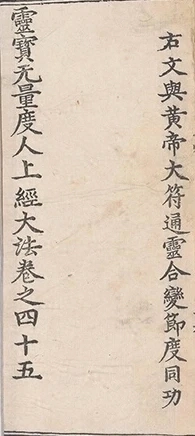 右文與黃帝大符通靈合變節度同功
靈寶无量度人上經大法卷之四十五